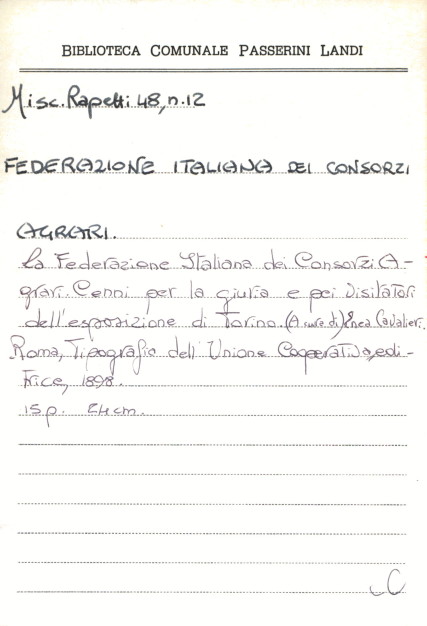 BIBLIOTECA COMUNALE PASSERINI LANDI
Misc. Rapetti 48, n. 12
FEDERAZIONE ITALIANA DEI CONSORZI
AGRARI.
La Federazione Italiana dei Consorzi A-
grari. Cenni per la giuria e pei visitatori
dell'esposizione di Torino. (A cura di) Enea Cavalieri.
Roma, Tipografia dell'Unione Cooperativa edi-
trice, 1898.
15 p. 24 cm.